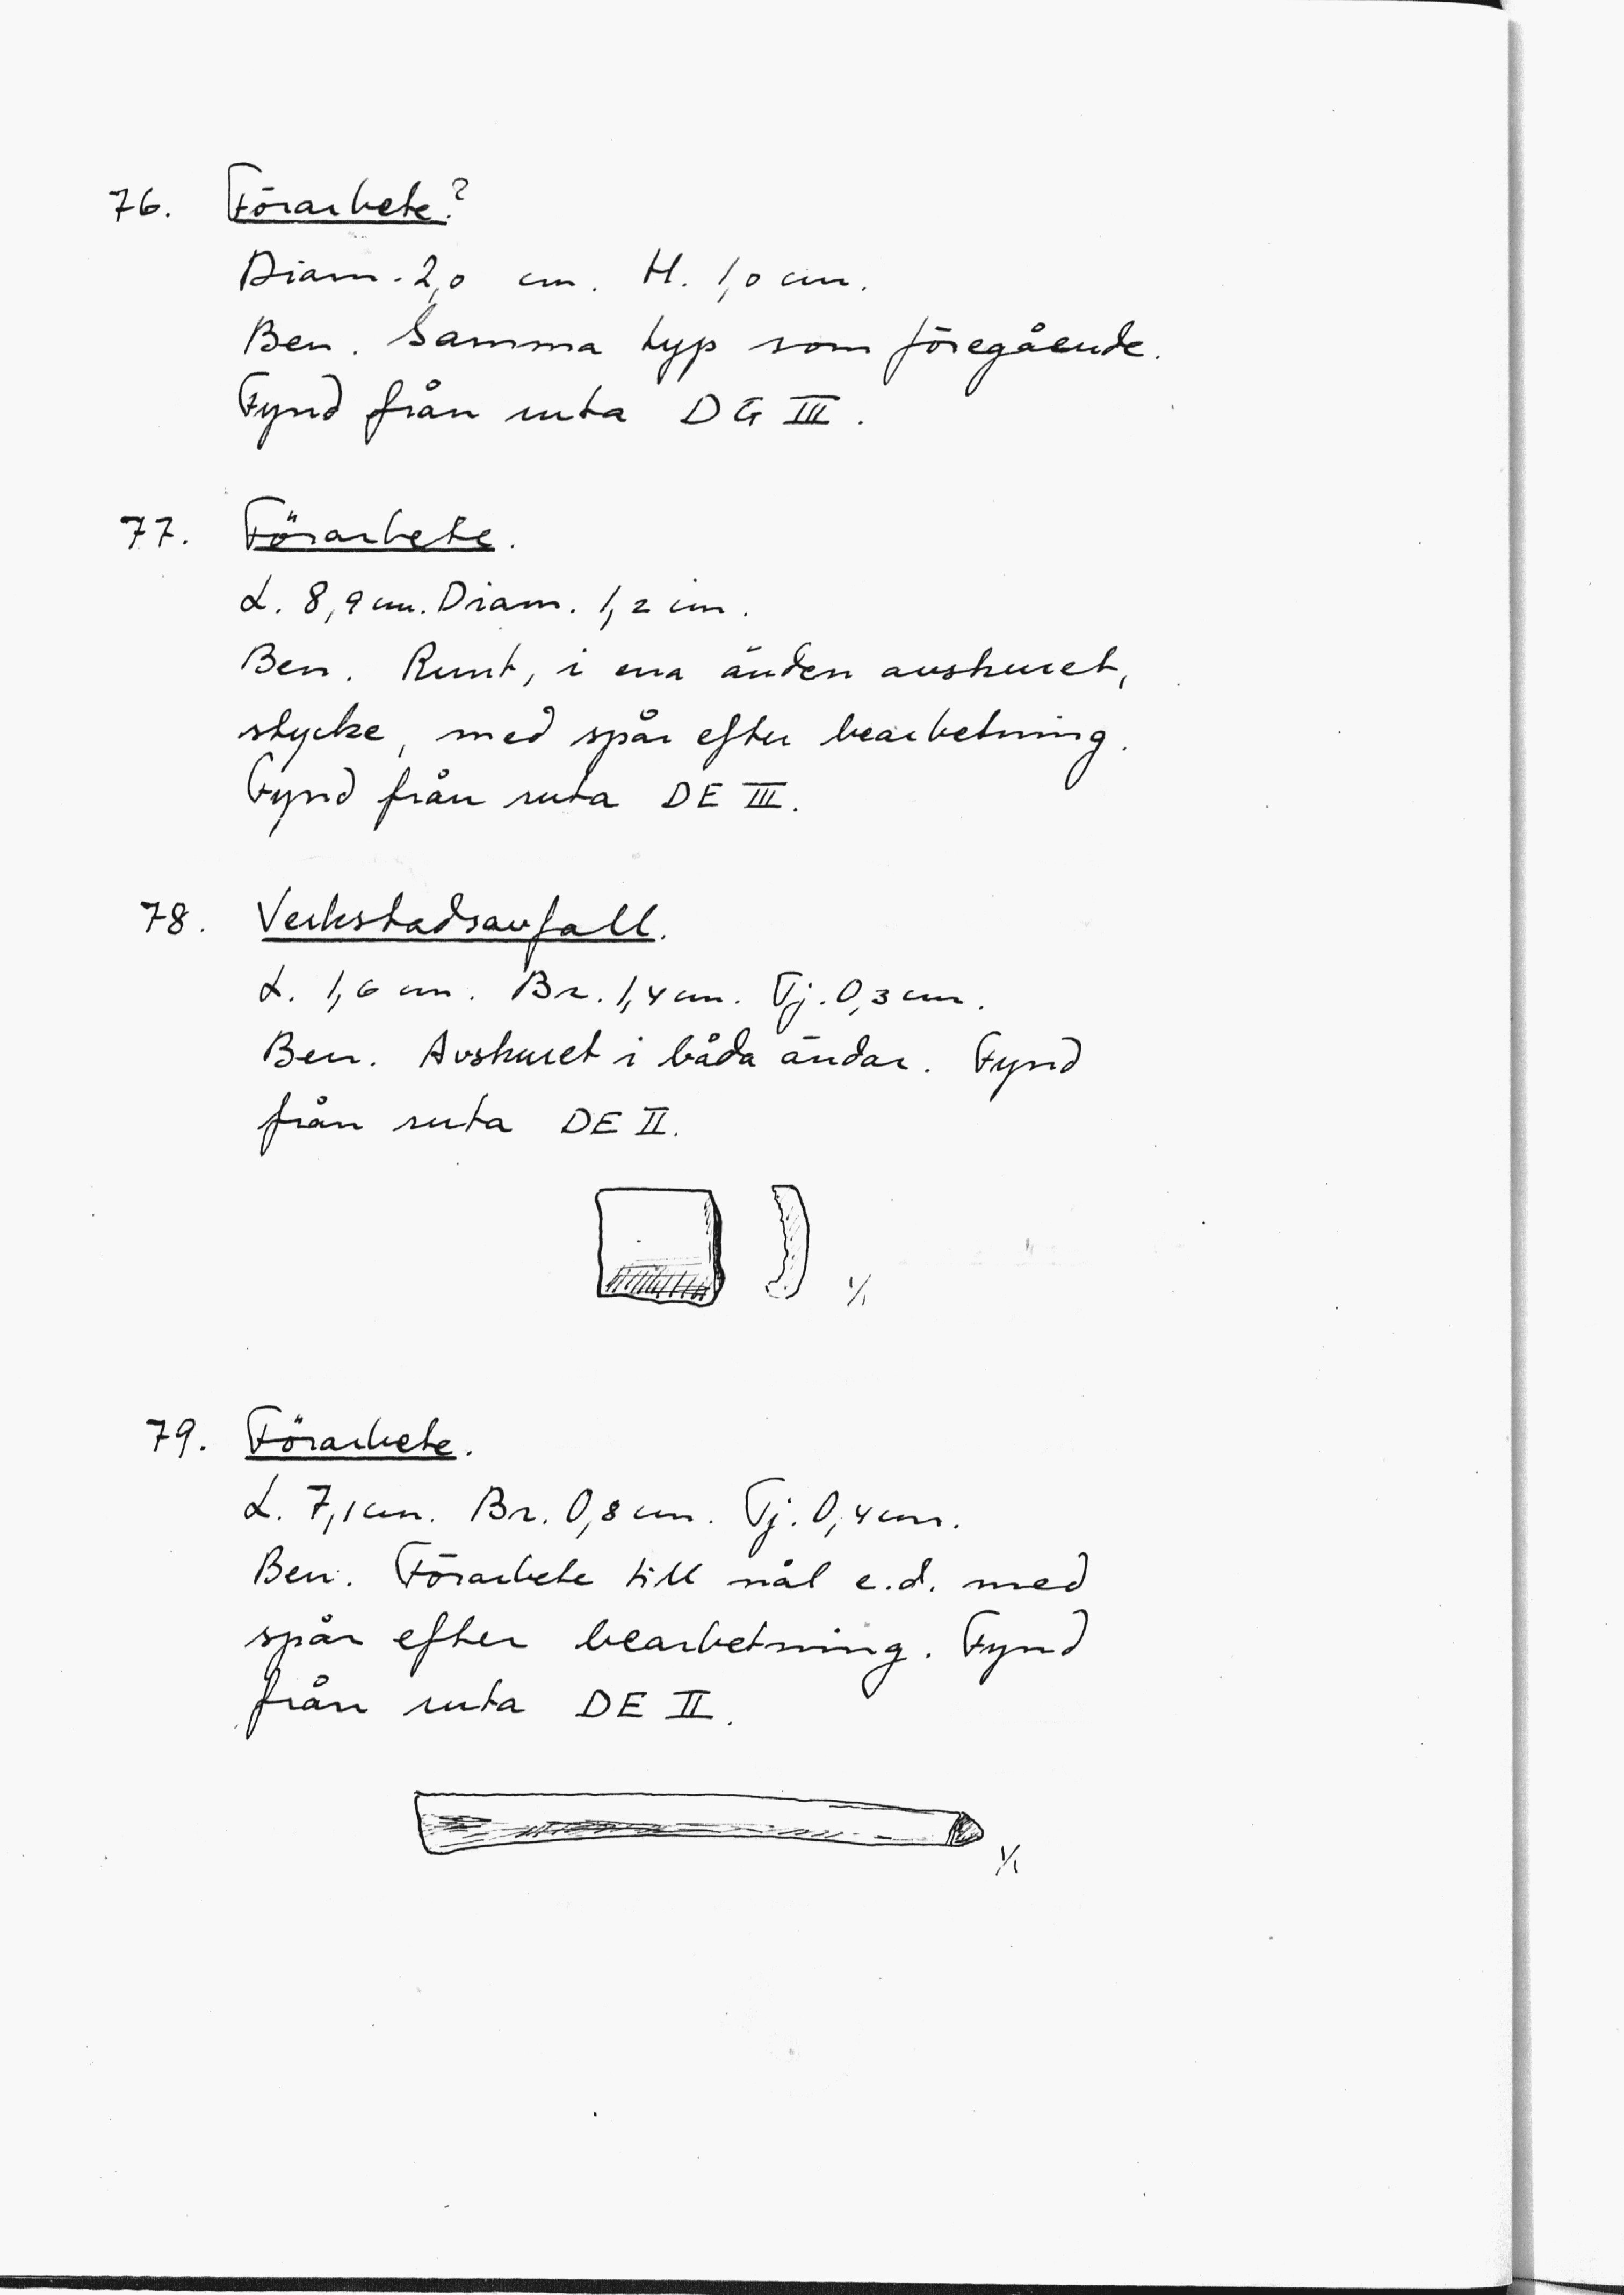 76. Förarbete?
Diam. 2,0 cm. H. 1,0 cm.
Ben. Samma typ som föregående.
Fynd från ruta DG III.
77. Förarbete.
L. 8,9 cm. Diam. 1,2 cm.
Ben. Runt, i ena änden avskuret,
stycke, med spår efter bearbetning.
Fynd från ruta DE III.
78. Verkstadsavfall.
L. 1,6 cm. Br. 1,4 cm. Tj. 0,3 cm.
Ben. Avskuret i båda ändar. Fynd
från ruta DE II.
1/1
79. Förarbete.
L. 7,1 cm. Br. 0,8 cm. Tj. 0,4 cm.
Ben. Förarbete till nål e.d. med
spår efter bearbetning. Fynd
från ruta DE II.
1/1